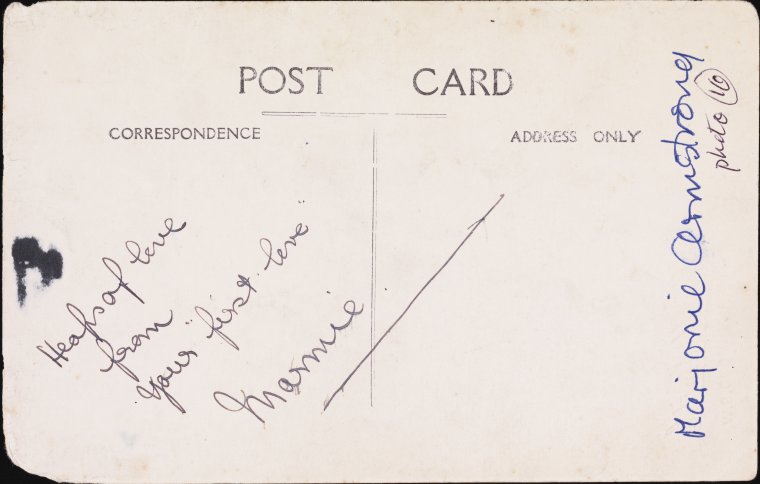 POST CARD
CORRESPONDENCE
ADDRESS ONLY
Heaps of love
from
your "first love"
Marmie
Marjorie Armstrong
photo 16